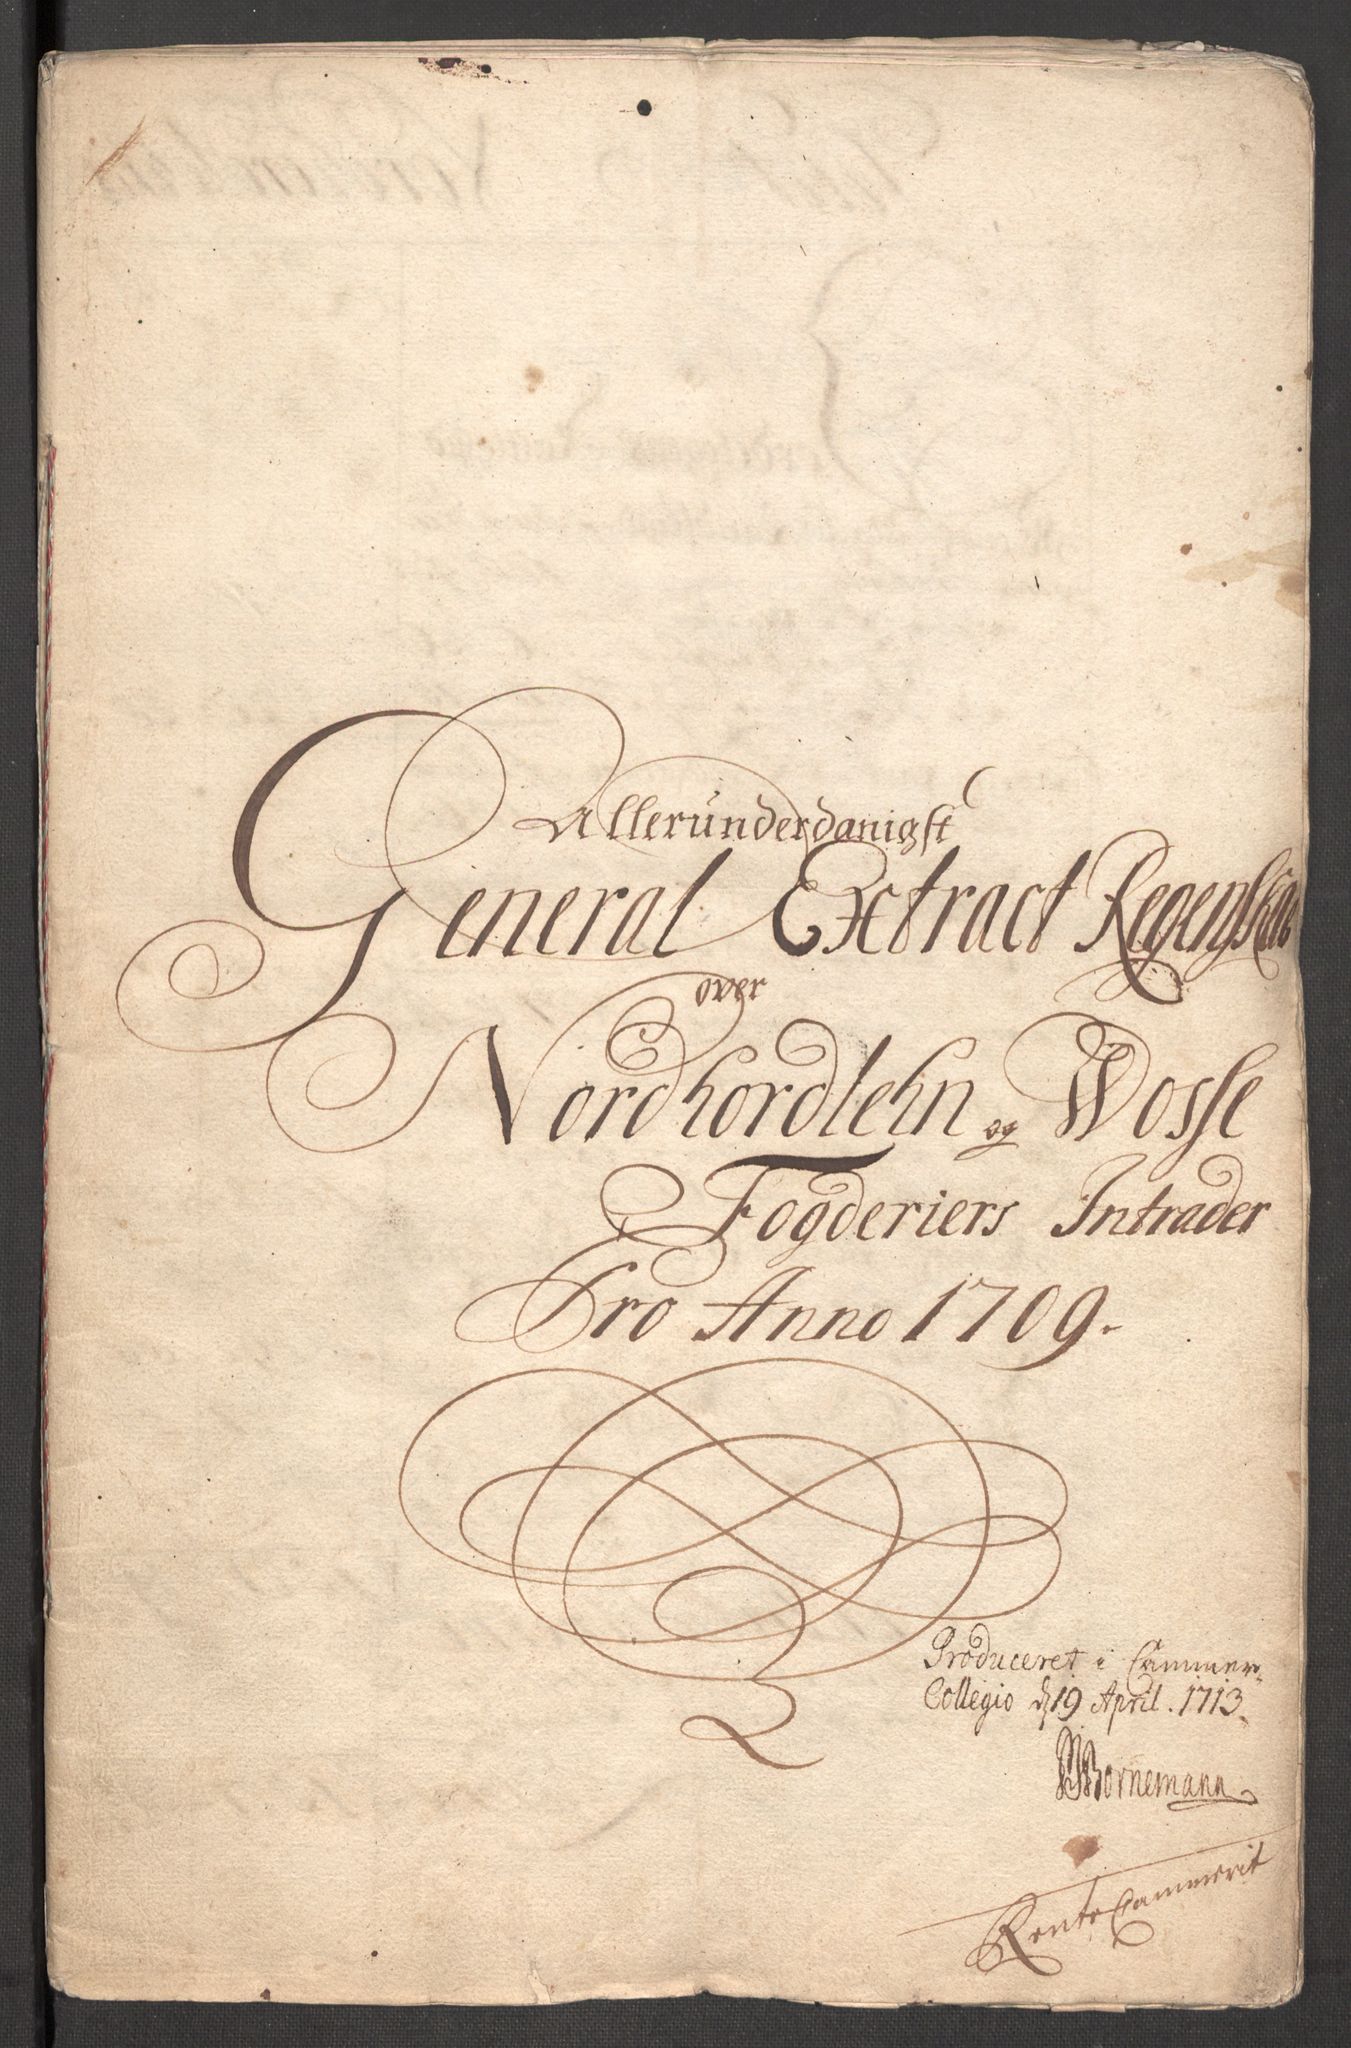 Allerunderdanigst
General Extract Regenskab
over
Nordhordlehn og Wosse
Fogderiers Intrader
Pro Anno 1709.
Produceret i Cammer-
Collegio d 19 April. 1713.
Bornemann
RenteCammerit